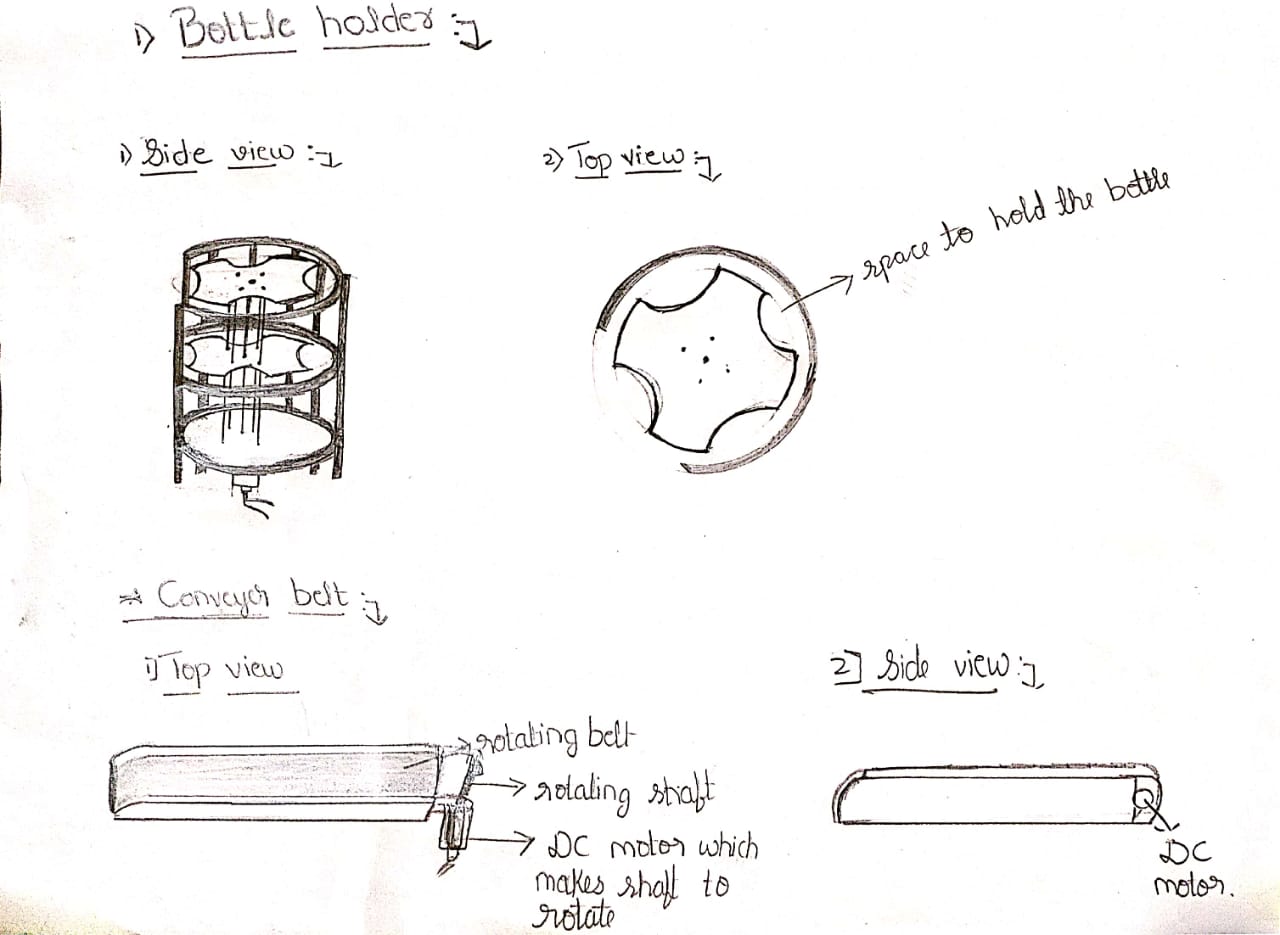 1) Bottle holder :-
1) Side view :-
2) Top view :-
space to hold the bottle
* Conveyor belt :-
1) Top view
rotating belt
rotating shaft
DC motor which
makes shaft to
rotate
2] Side view :-
DC
motor.